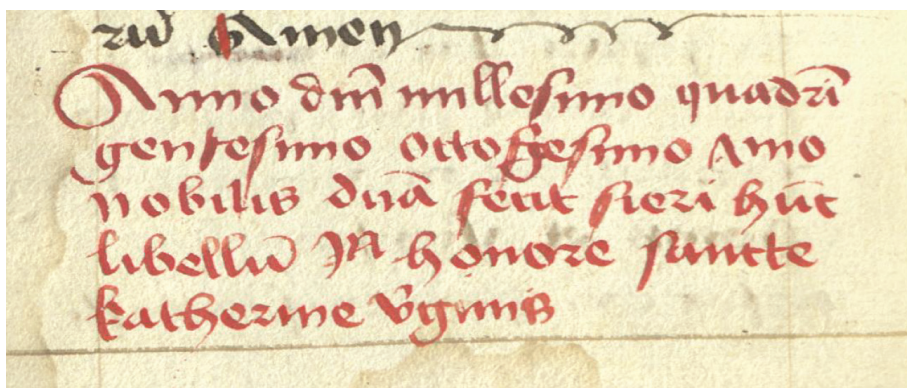 rū Amen
Anno dn̄i millesimo quadrin
gentesimo octogesimo Anno
nobilis dnā fecit fieri hūc
libellū In honore sancte
katherine v̄ginis